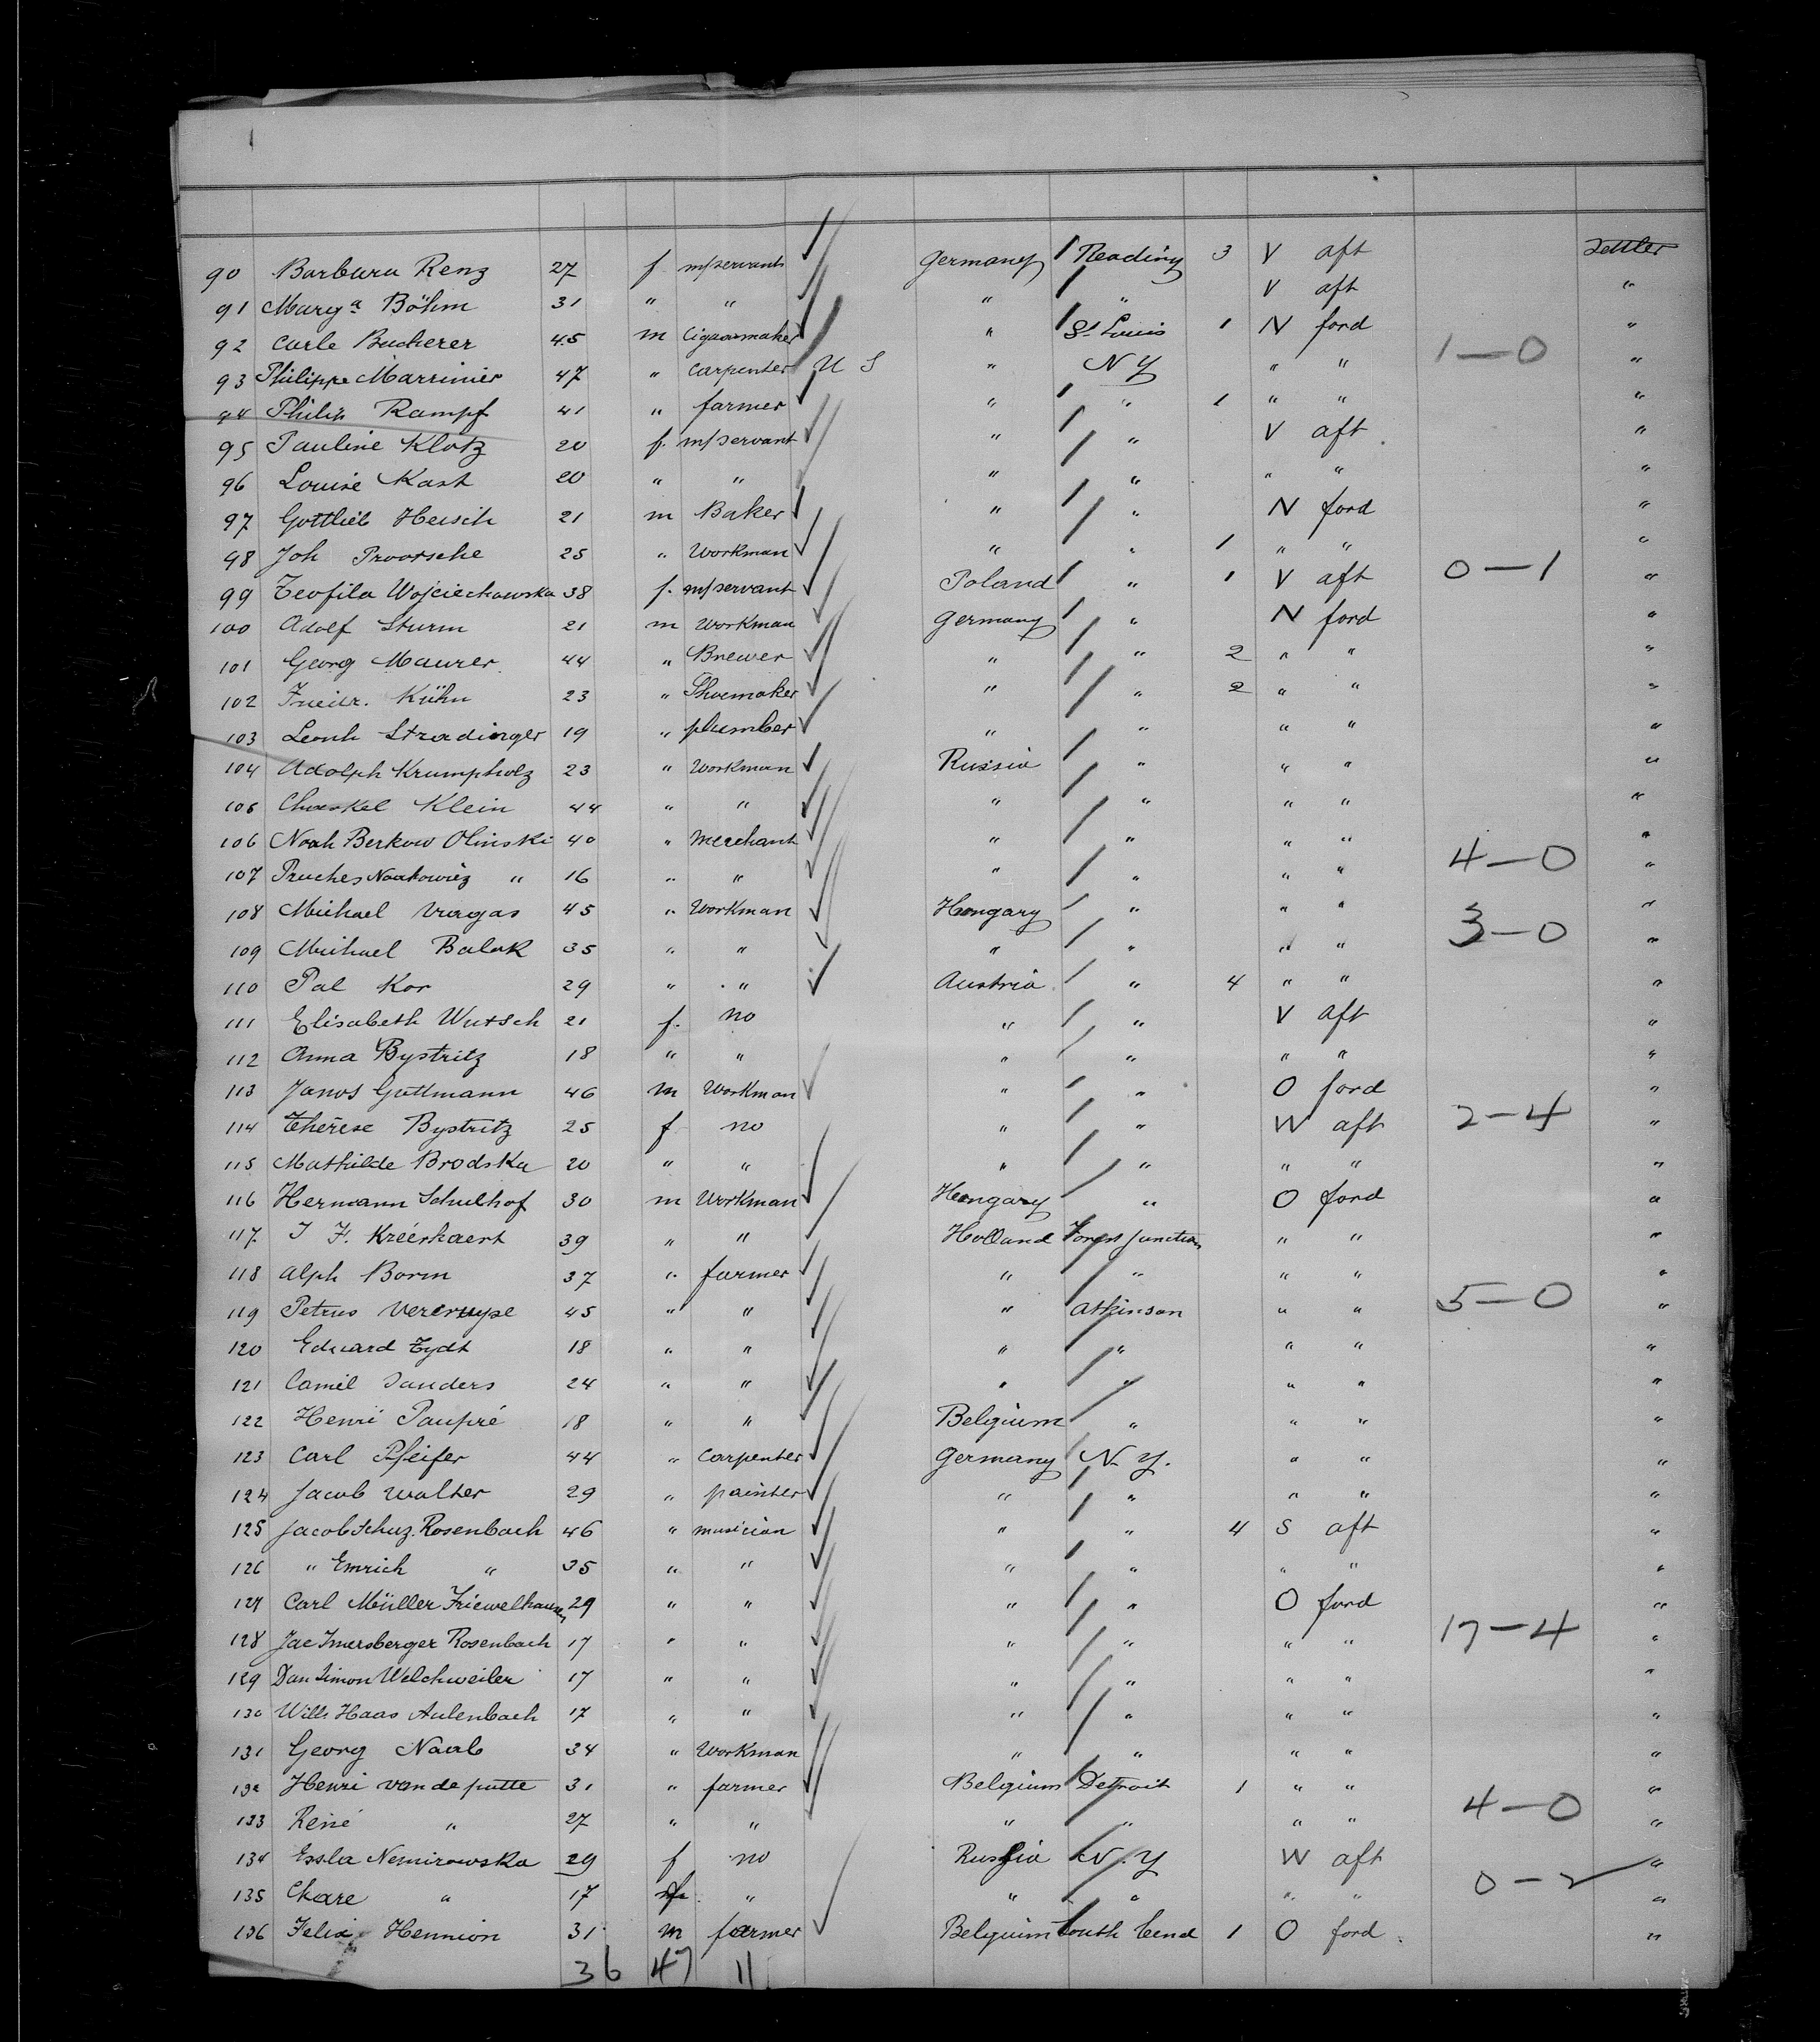 90 Barbara Renz 27 f. m/servant Germany Reading 3 V aft Settler
91 Marg.a Böhm 31 " " " " V aft "
92 Carle Bucherer 45 m Cigarmaker " St Louis 1 N ford "
93 Philippe Marrinier 47 " Carpenter U S " N Y " " 1—0 "
94 Philip Rampf 41 " farmer " " 1 " " "
95 Pauline Klotz 20 f. m/servant " " V aft "
96 Louise Kast 20 " " " " " " "
97 Gottlieb Hersich 21 m Baker " " N ford "
98 Joh 25 " Workman " " 1 " " "
99 Teofila Wojciechowska 38 f. m/servant Poland " 1 V aft 0—1 "
100 Adolf Sturm 21 m Workman Germany " N ford "
101 Georg Maurer 44 " Brewer " " 2 " " "
102 Friedr. Kühn 23 " Shoemaker " " 2 " " "
103 Leonh Stradinger 19 " plumber " " " " "
104 Adolph Krumpholz 23 " Workman Russia " " " "
105 Chaskel Klein 44 " " " " " " "
106 Noah Berkow Olinski 40 " merchant " " " " 4—0 "
107 Pruches Noakowiez " 16 " " " " " " "
108 Michael Vargas 45 " Workman Hongary " " " "
109 Michael Balok 35 " " " " " " 3—0 "
110 Pal Kor 29 " " Austria " 4 " " "
111 Elisabeth Wutsch 21 f. no " " V aft "
112 Anna Bystritz 18 " " " " " " "
113 Janos Guttmann 46 m Workman " " O ford "
114 Thérèse Bystritz 25 f no " " W aft 2—4 "
115 Mathilde Brodska 20 " " " " " " "
116 Hermann Schulhof 30 m Workman Hongary " O ford "
117. J F. Kréérhaert 39 " " Holland Forest Junction " " "
118 Alph Borm 37 " farmer " " " " "
119 Petrus Vereruyse 45 " " " Atkinson " " 5—0 "
120 Eduard Tydt 18 " " " " " " "
121 Camil Sanders 24 " " " " " " "
122 Henri Paupré 18 " " Belgium " " " "
123 Carl Pfeifer 44 " Carpenter Germany N. Y. " " "
124 Jacob Walter 29 " painter " " " " "
125 Jacob Schuz. Rosenbach 46 " musician " " 4 S aft "
126 " Emrich " 35 " " " " " " "
127 Carl Müller Friewelhausen 29 " " " " O ford "
128 Jac Imersberger Rosenbach 17 " " " " " " 17—4 "
129 Dan Simon Welchweiler 17 " " " " " " "
130 Will. Haas Aulenbach 17 " " " " " " "
131 Georg Naab 34 " Workman " " " " "
132 Henri van de putte 31 " farmer Belgium Detroit 1 " " "
133 René " 27 " " " " " " 4—0 "
134 Essla Nemirowska 29 f no Russia N. Y W aft "
135 Chare " 17 f " " " " " 0—2 "
136 Felix Hennion 31 m farmer Belguim South Bend 1 O ford "
36 47 11